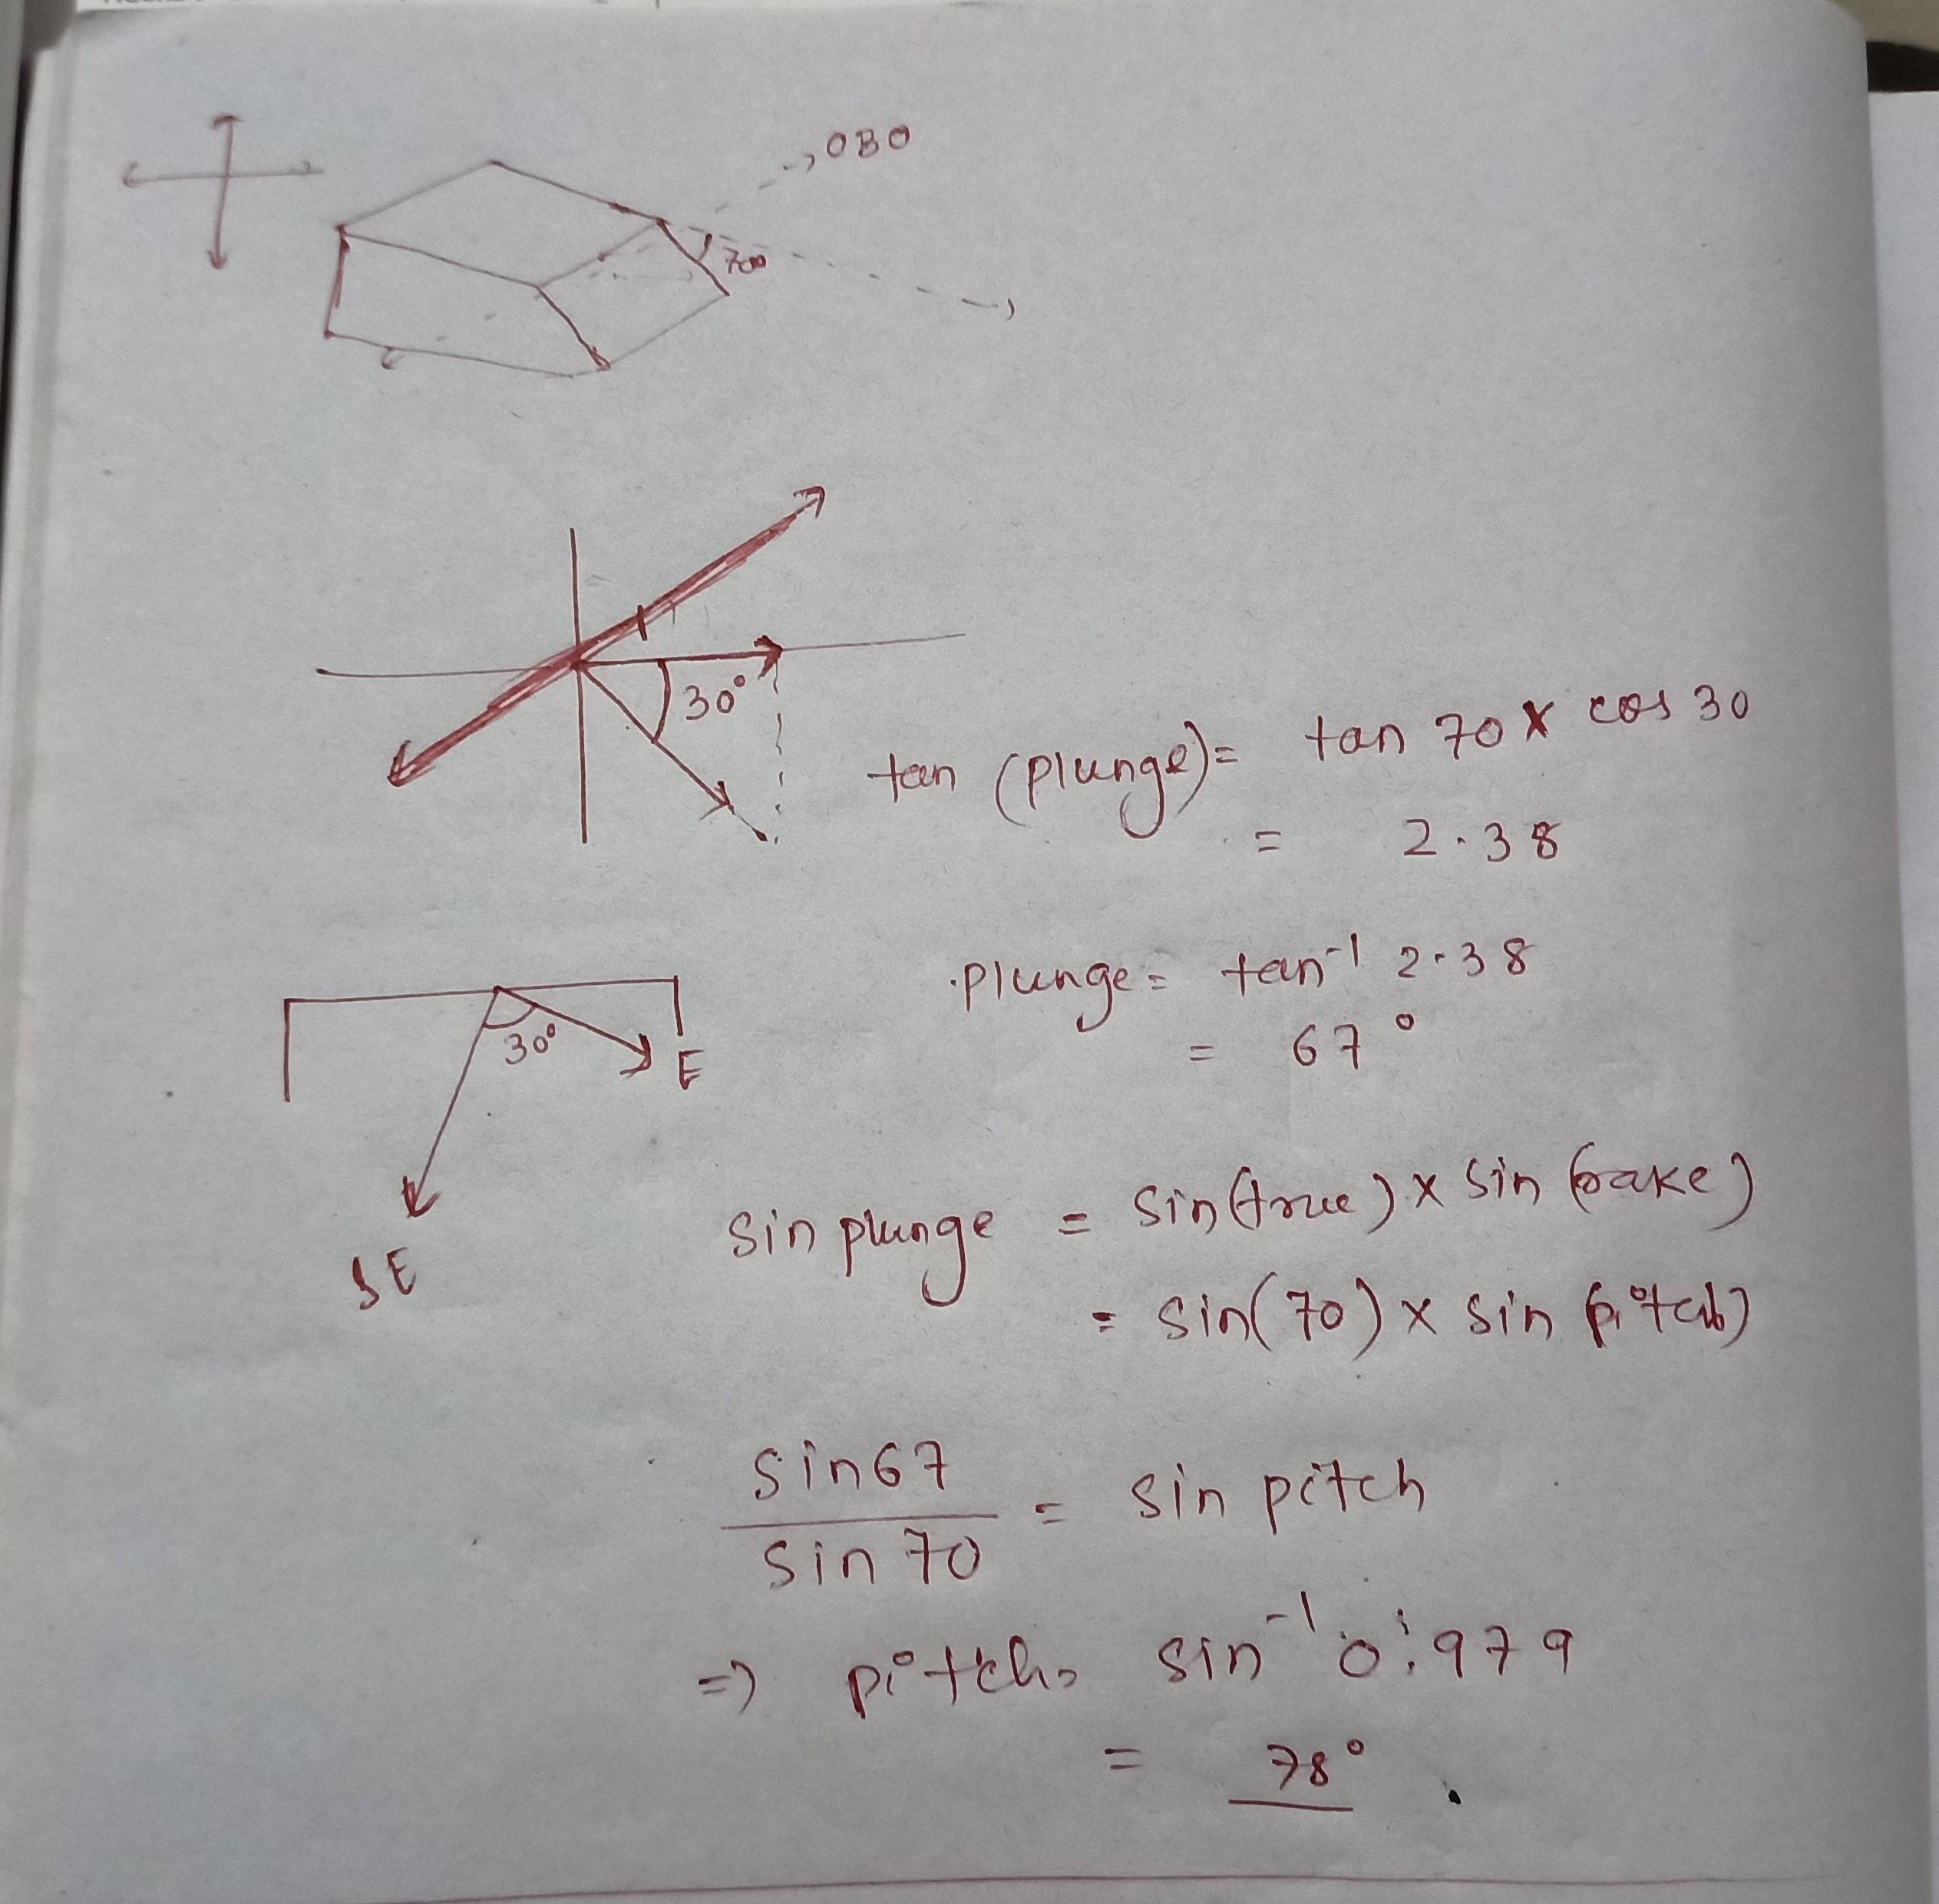 OBO
70°
30°
tan (plunge) = tan 70 x cos 30
= 2.38
plunge = tan⁻¹ 2.38
= 67°
30°
E
SE
sin plunge = sin(true) x sin (rake)
= sin(70) x sin (pitch)
sin67
sin 70
= sin pitch
=) pitch = sin⁻¹ 0.979
= 78°